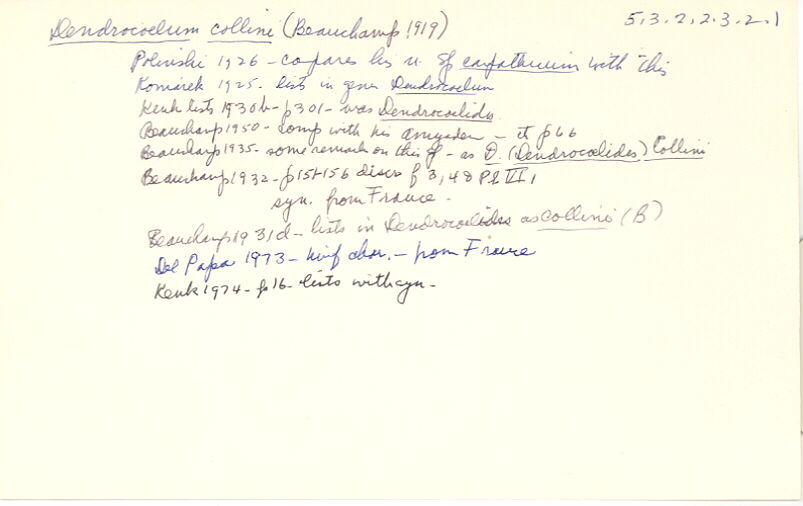 Dendrocoelum collini (Beauchamp 1919) 5.3.2.2.3.2.1
Polinski 1926 - compares his n. sp carpathicum with this
Komárek 1925 - lists in genus Dendrocoelum
Kenk lists 1930b - p301 - was Dendrocoelides
Beauchamp 1950 - comp with his - it p66
Beauchamp 1935 - some remark on this sp - as D. (Dendrocoelides) Collini
Beauchamp 1932 - p151-156 discs f 3, 48 Pl VI,
syn. from France -
Beauchamp 1931d - lists in Dendrocoelides as collini (B)
Del Papa 1973 - char. - from France
Kenk 1974 - p16 - lists with syn -